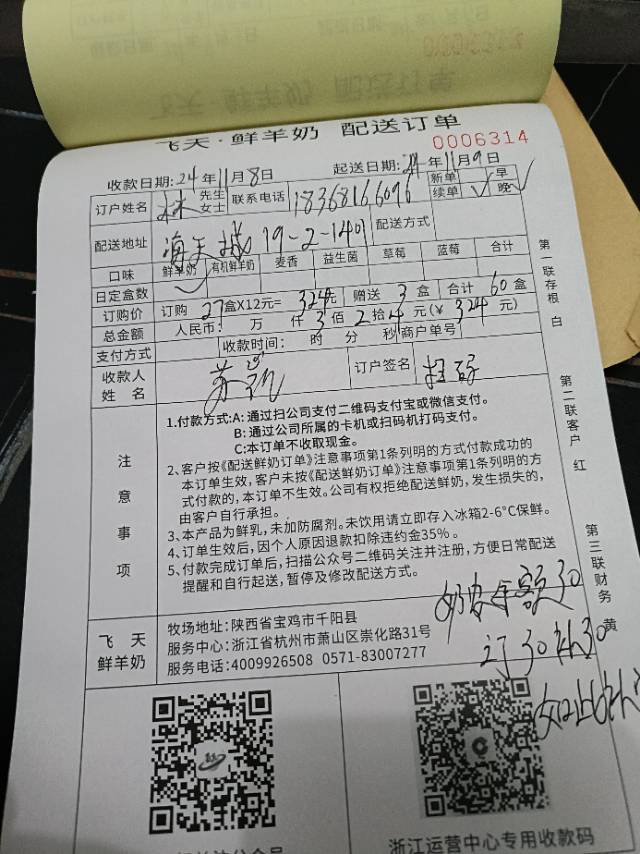 飞天·鲜羊奶 配送订单
0006314
收款日期: 24年11月8日 起送日期: 24年11月9日
订户姓名 林 先生 女士 联系电话 18368166096 新单 续单 ✓ 早 晚 ✓
配送地址 海天城 19-2-1401 配送方式
口味 鲜羊奶 有机鲜羊奶 麦香 益生菌 草莓 蓝莓 合计
日定盒数 ✓
订购价 订购 27盒X12元= 324元 赠送 3盒 合计 60盒
总金额 人民币: 万 仟 3佰 2拾 4元(¥ 324元)
支付方式 收款时间: 时 分 秒 商户单号
收款人姓名 订户签名
注意事项
1.付款方式:A: 通过扫公司支付二维码支付宝或微信支付。
B: 通过公司所属的卡机或扫码机打码支付。
C:本订单不收取现金。
2、客户按《配送鲜奶订单》注意事项第1条列明的方式付款成功的
本订单生效,客户未按《配送鲜奶订单》注意事项第1条列明的方
式付款的,本订单不生效。公司有权拒绝配送鲜奶,发生损失的,
由客户自行承担。
3、本产品为鲜乳,未加防腐剂。未饮用请立即存入冰箱2-6°C保鲜。
4、订单生效后,因个人原因退款扣除违约金35%。
5、付款完成订单后,扫描公众号二维码关注并注册,方便日常配送
提醒和自行起送,暂停及修改配送方式。
奶 余额30
订30补30
如此
飞天鲜羊奶
牧场地址:陕西省宝鸡市千阳县
服务中心:浙江省杭州市萧山区崇化路31号
服务电话:4009926508 0571-83007277
浙江运营中心专用收款码
第一联存根 白
第二联客户 红
第三联财务 黄